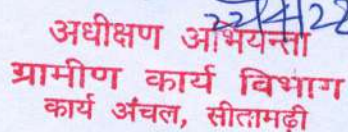 22/4/22
अधीक्षण अभियन्ता
ग्रामीण कार्य विभाग
कार्य अंचल, सीतामढ़ी